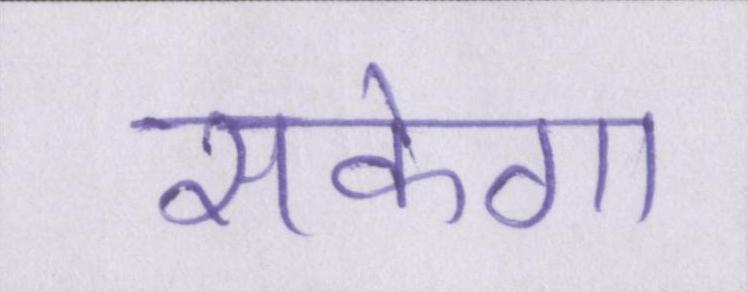 सकेगा